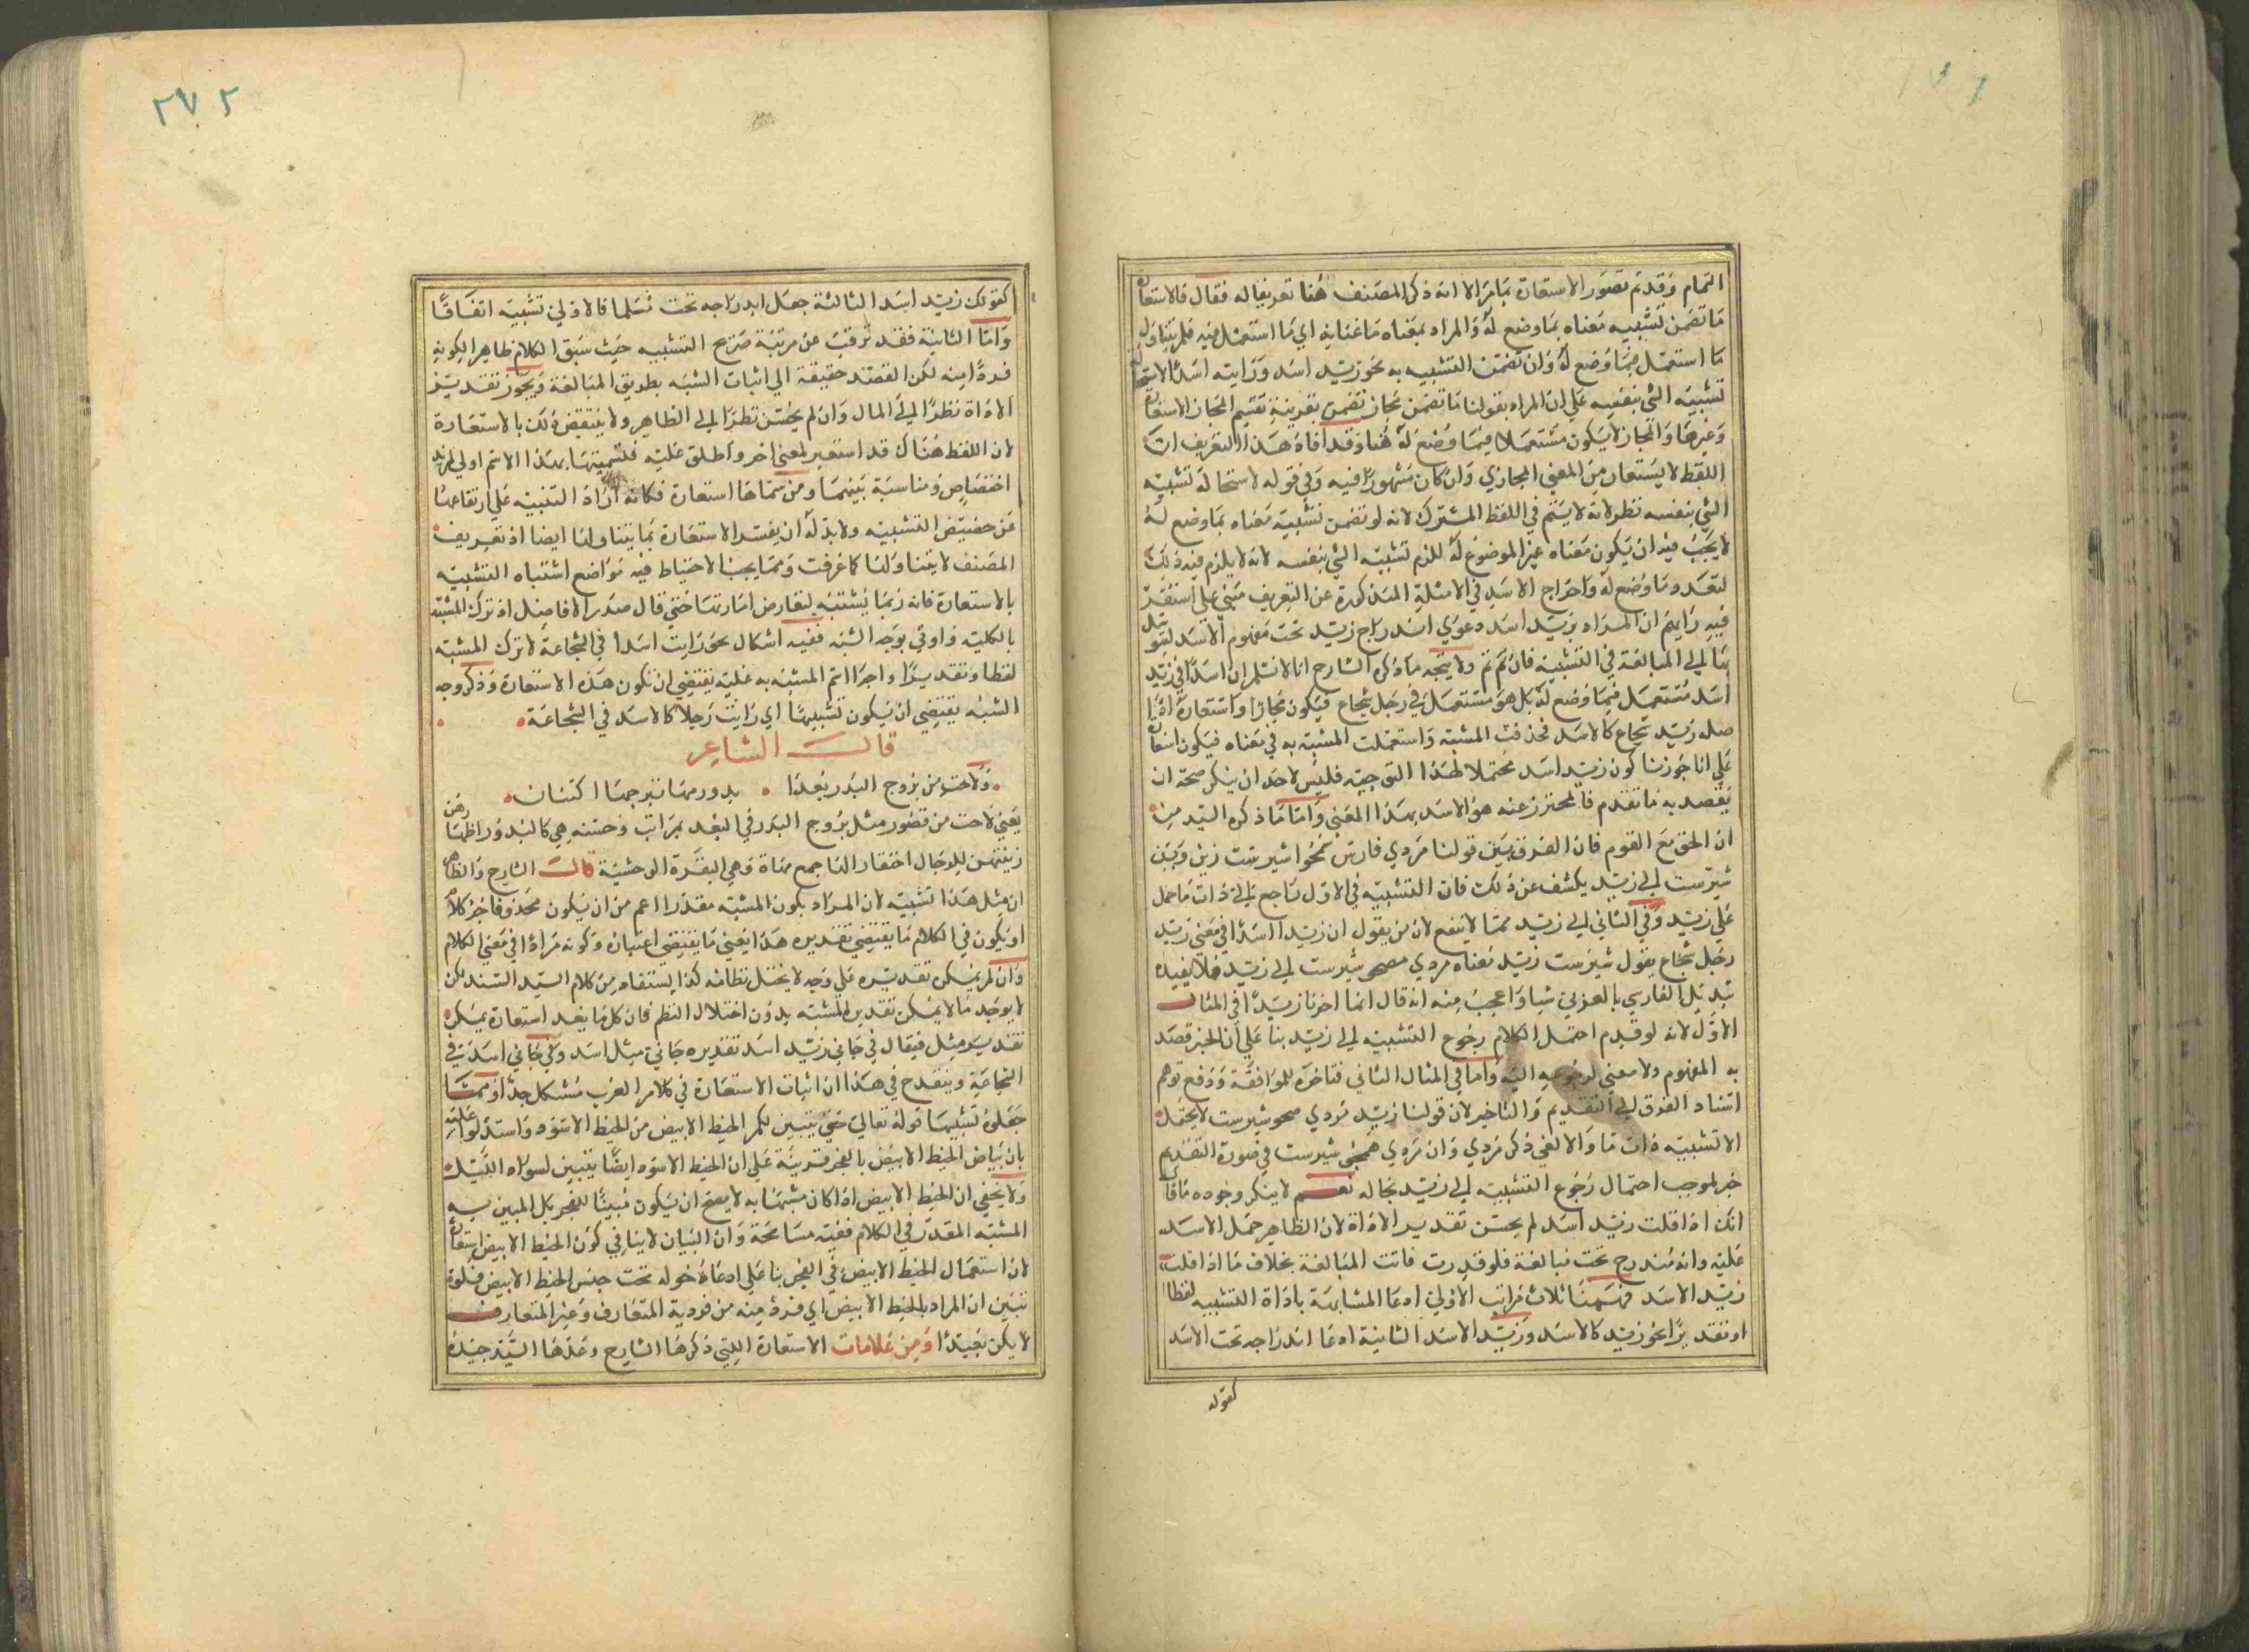 التمام وقد تم تصور الاستعارة بما مر الا انه ذكر المصنف هنا تعريفا له فقال فالاستعارة
ما تضمن تشبيه معناه بما وضع له والمراد بمعناه ما عنى به اي ما استعمل فيه فلم يتناول
ما استعمل فيما وضع له وان تضمن التشبيه به نحو زيد اسد ورايته اسدا لاستحالة
تشبيه الشي بنفسه على ان المراد بقولنا ما تضمن مجاز تضمن بقرينة تقسيم المجاز الاستعارة
وغيرها والمجاز لا يكون مستعملا فيما وضع له هنا وقد افاد هذا التعريف ان
اللفظ لا يستعار من المعنى المجازي وان كان مشهورا فيه وفي قوله لاستحالة تشبيه
الشي بنفسه نظر لانه لا يتم في اللفظ المشترك لانه لو تضمن تشبيه معناه بما وضع له
لا يجب فيه ان يكون معناه غير الموضوع له للزم تشبيه الشي بنفسه لانه لا يلزم فيه ذلك
لتعدد ما وضع له واخراج الاسد في الامثلة المذكورة عن التعريف مبني على استقر
فيه رايهم ان المراد بزيد اسد دعوى اندراج زيد تحت مفهوم الاسد
بنا الى المبالغة في التشبيه فان تم تم ولا يتجه ما ذكره الشارح انا لا نسلم ان اسدا في زيد
اسد مستعمل فيما وضع له بل هو مستعمل في رجل شجاع فيكون مجازا واستعارة اذ
صله زيد شجاع كالاسد فحذفت المشبه واستعملت المشبه به في معناه فيكون استعارة
على انا جوزنا كون زيد اسد محتملا لهذا التوجيه فليس لاحد ان ينكر صحة ان
يقصد به ما تقدم فالمحترز عنه هو الاسد بهذا المعنى واما ما ذكره السيد من
ان الحق مع القوم فان الفرق بين قولنا مردي فارس همچو شيرست زيد وبين
شيرست الى زيد يكشف عن ذلك فان التشبيه في الاول راجع الى ذات ما حمل
على زيد وفي الثاني الى زيد مما لا ينفع لان من يقول ان زيدا اسدا في معنى زيد
رجل شجاع يقول شيرست زيد معناه مردي همچو شيرست الى زيد فلا يفيده
تبديل الفارسي بالعربي شيا واعجب منه انه قال انما اخرنا زيدا في المثال
الاول لانه لو قدم احتمل الكلام رجوع التشبيه الى زيد بنا على ان الخبر قصد
به المفهوم ولا معنى لرجوعه اليه واما في المثال الثاني فتاخره للموافقة ودفع توهم
استناد الفرق الى التقديم والتاخير لان قولنا زيد مردي همچو شيرست لا يحتمل
الا تشبيه ذات ما والا لغي ذكر مردي وان مردي همچو شيرست في صورة التقديم
خبر لموجب احتمال رجوع التشبيه الى زيد بحاله نعم لا ينكر وجوده ما قال
انك اذا قلت زيد اسد لم يحسن تقدير الاداة لان الظاهر حمل الاسد
عليه وانه مندرج تحت مبالغة فلو قدرت فاتت المبالغة بخلاف ما اذا قلت
زيد الاسد فههنا ثلاث مراتب الاولى ادعا المشابهة باداة التشبيه لفظا
او تقديرا نحو زيد كالاسد وزيد الاسد الثانية ادعا اندراجه تحت الاسد
كقوله
٢٧٢
كقولك زيد اسد الثالثة جعل اندراجه تحت مسلما فالاولى تشبيه اتفاقا
واما الثانية فقد ترقت عن مرتبة صريح التشبيه حيث سبق الكلام ظاهرا لكونه
فردا منه لكن القصد حقيقة الى اثبات الشبه بطريق المبالغة ويجوز تقدير
الاداة نظرا الى المال وان لم يحسن نظرا الى الظاهر ولا ينتقض ذلك بالاستعارة
لان اللفظ هناك قد استعير لمعنى اخر واطلق عليه فلتسميتها بهذا الاسم اولى لمزيد
اختصاص ومناسبة بينهما ومن سماها استعارة فكانه اراد التنبيه على ارتفاعها
عن حضيض التشبيه ولا بد له ان يفسر الاستعارة بما يتناولها ايضا اذ تعريف
المصنف لا يتناولها كما عرفت ومما يجب الاحتياط فيه مواضع اشتباه التشبيه
بالاستعارة فانه ربما يشتبه لتعارض امارتهما حتى قال صدر الافاضل اذ ترك المشبه
بالكلية واوتي بوجه الشبه ففيه اشكال نحو رايت اسدا في الشجاعة لا ترك المشبه
لفظا وتقديرا واجرا اسم المشبه به عليه يقتضي ان تكون هذه الاستعارة وذكر وجه
الشبه يقتضي ان يكون تشبيها اي رايت رجلا كالاسد في الشجاعة
قال الشاعر
ولاحت من بروج البدر بعدا بدور مها تبرجها اكتنان
يعني لاحت من قصور مثل بروج البدر في البعد مراتب وحسنه هي كالبدور اظهارهن
زينتهن للرجال اختفار المها جمع مهاة وهي البقرة الوحشية قال الشارح والظاهر
ان مثل هذا تشبيه لان المراد بكون المشبه مقدرا اعم من ان يكون محذوفا جزء كلام
او يكون في الكلام ما يقتضي تقديره هذا يعني ما يقتضي اعتباره وكونه مرادا في معنى الكلام
وان لم يمكن تقديره على وجه لا يختل نظامه كذا يستفاد من كلام السيد السند لكن
لا يوجد ما لا يمكن تقدير المشبه بدون اختلال النظم فان كل ما يعد استعارة يمكن
تقدير مثل فيقال في جاني زيد اسد تقديره جاني مثل اسد وفي جاني اسد في
الشجاعة وينقدح في هذا ان اثبات الاستعارة في كلام العرب مشكل جدا ومما
جعلوه تشبيها قوله تعالى حتى يتبين لكم الخيط الابيض من الخيط الاسود واستدلوا عليه
بان بياض الخيط الابيض بالفجر قرينة على ان الخيط الاسود ايضا يتبين لسواد الليل
ولا يخفى ان الخيط الابيض اذا كان مشبها به لا يصح ان يكون مبينا للفجر بل المبين به
المشبه المقدر في الكلام ففيه مسامحة وان البيان لا ينافي كون الخيط الابيض استعارة
لان استعمال الخيط الابيض في الفجر بنا على ادعا دخوله تحت جنس الخيط الابيض فلو
تبين ان المراد بالخيط الابيض اي فرد منه من فردية المتعارف وغير المتعارف
لا يكن بعيدا ومن علامات الاستعارة التي ذكرها الشارح وعدها السيد جيدة